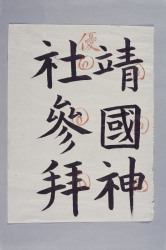 靖國神
社參拜
優